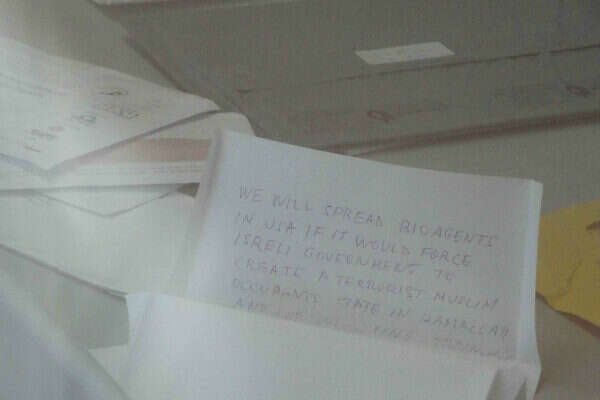 WE WILL SPREAD BIOAGENTS
IN USA IF IT WOULD FORCE
ISRELI GOVERNMENT TO
CREATE A TERRORIST MUSLIM
OCCUPANTS STATE IN RAMALLAH
AND